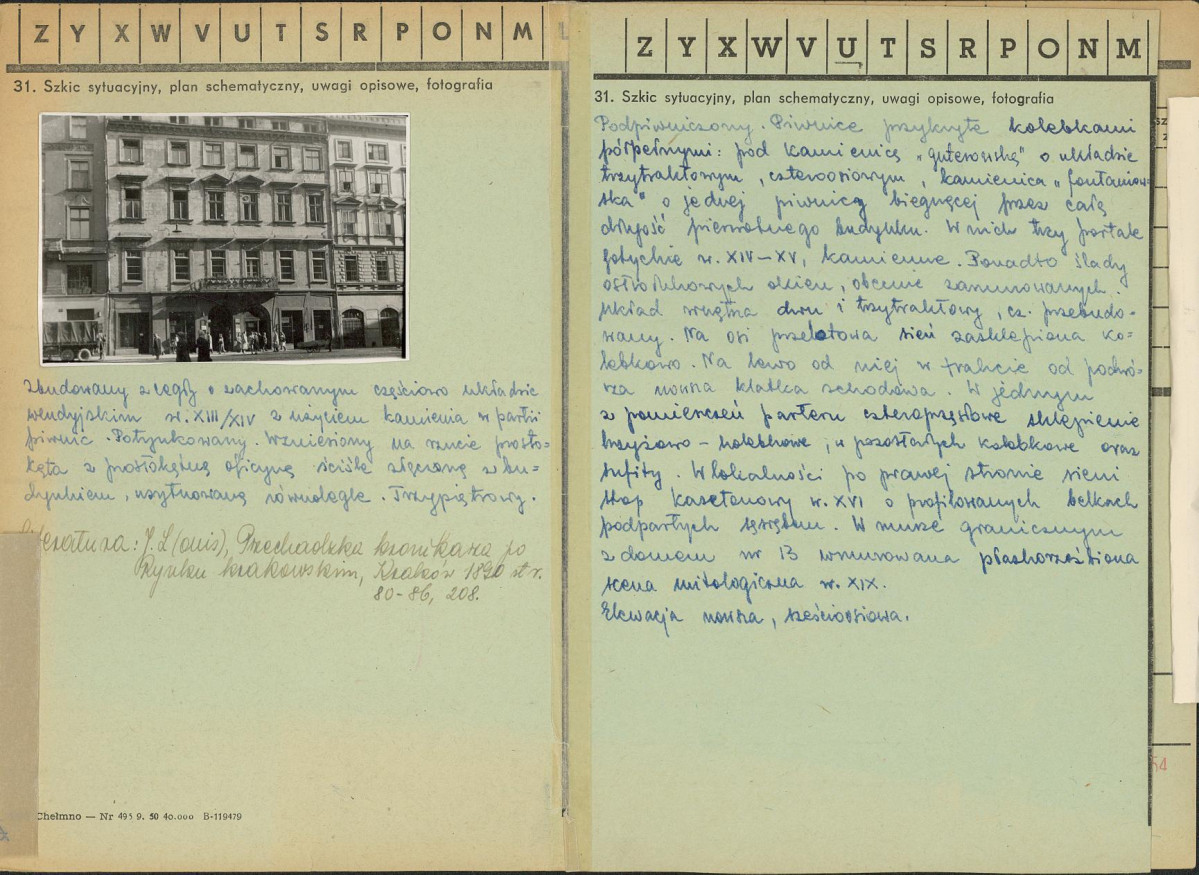 Z Y X W V U T S R P O N M L
31. Szkic sytuacyjny, plan schematyczny, uwagi opisowe, fotografia
Zbudowany z cegły o zachowanym częściowo układzie
wendyjskim w. XIII/XIV z użyciem kamienia w partii
piwnic. Potynkowany. Wzniesiony na rzucie prosto-
kąta z prostokątną oficyną ściśle złączoną z bu-
dynkiem, usytuowaną równolegle. Trzypiętrowy.
Literatura: J. L(ouis), Przechadzka kronikarza po
Rynku krakowskim, Kraków 1890 str.
80-86, 208.
Chełmno — Nr 493 9. 50 40.000 B-119479
Z Y X W V U T S R P O N M
31. Szkic sytuacyjny, plan schematyczny, uwagi opisowe, fotografia
Podpiwniczony. Piwnice przykryte kolebkami
półpełnymi: pod kamienicą „guterowską" o układzie
trzytraktowym, czteroosiowym, kamienica „fontanow-
ska" o jednej piwnicy biegnącej przez całą
długość pierwotnego budynku. W nich trzy portale
gotyckie w. XIV–XV, kamienne. Ponadto ślady
ostrołukowych okien, obecnie zamurowanych.
Układ wnętrza dwu i trzytraktowy, cz. przebudo-
wany. Na osi przelotowa sień zasklepiona ko-
lebkowo. Na lewo od niej w trakcie od podwó-
rza nowsza klatka schodowa. W jednym
z pomieszczeń parteru czteroprzęsłowe sklepienie
krzyżowo-kolebkowe, w pozostałych kolebkowe oraz
sufity. W lokalności po prawej stronie sieni
strop kasetonowy w. XVI o profilowanych belkach
podpartych
W murze granicznym
z domem nr 13 wmurowana płaskorzeźbiona
scena mitologiczna w. XIX.
Elewacja nowsza, sześcioosiowa.
54